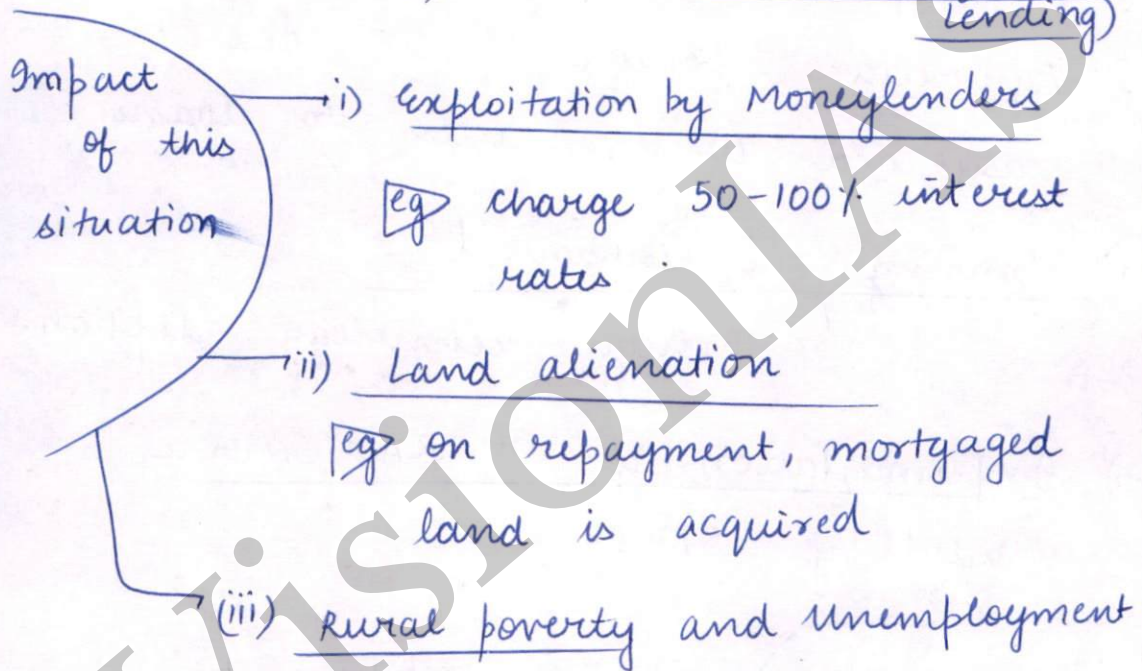 Lending)
Impact
of this
situation
i) Exploitation by Moneylenders
eg charge 50-100% interest
rates
ii) Land alienation
eg on repayment, mortgaged
land is acquired
(iii) Rural poverty and Unemployment
VisionIAS